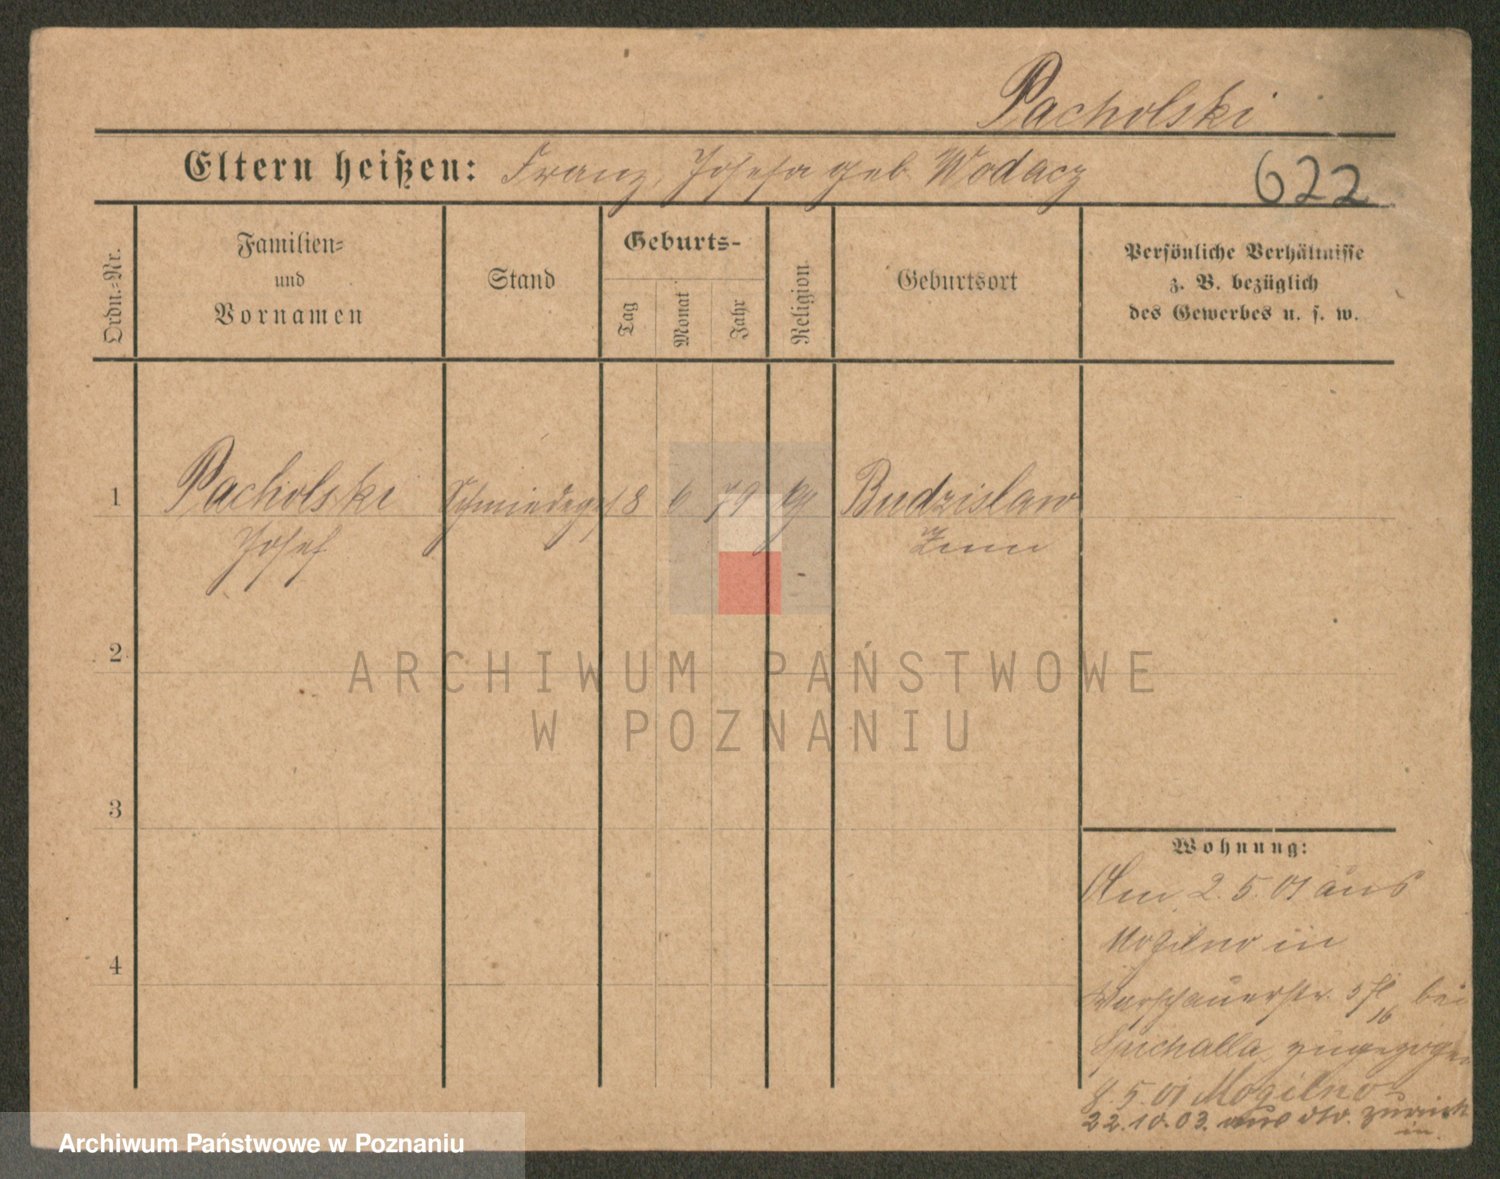 Pacholski
Eltern heißen: Franz, Josefa geb. Wodacz
622
Ordn.-Nr.
Familien-
und
Vornamen
Stand
Geburts-
Tag
Monat
Jahr
Religion
Geburtsort
Persönliche Verhältnisse
z. B. bezüglich
des Gewerbes u. s. w.
1
Pacholski
Josef
Schmiedeges
8
6
79
Budzislaw
2
3
4
Wohnung:
Am 2.5.01 aus
Mogilno in
Warschauerstr. 3 bei
16
zugezogen
8.5.01 Mogilno
22.10.03. aus dto. zurück
in
ARCHIWUM PAŃSTWOWE
W POZNANIU
Archiwum Państwowe w Poznaniu